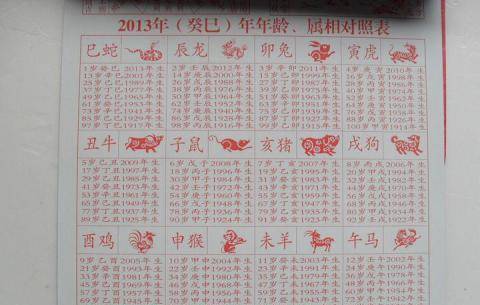 2013年（癸巳）年年龄、属相对照表
巳蛇
1岁癸巳2013年生
13岁辛巳2001年生
25岁己巳1989年生
37岁丁巳1977年生
49岁乙巳1965年生
61岁癸巳1953年生
73岁辛巳1941年生
85岁己巳1929年生
97岁丁巳1917年生
辰龙
2岁壬辰2012年生
14岁庚辰2000年生
26岁戊辰1988年生
38岁丙辰1976年生
50岁甲辰1964年生
62岁壬辰1952年生
74岁庚辰1940年生
86岁戊辰1928年生
98岁丙辰1916年生
卯兔
3岁辛卯2011年生
15岁己卯1999年生
27岁丁卯1987年生
39岁乙卯1975年生
51岁癸卯1963年生
63岁辛卯1951年生
75岁己卯1939年生
87岁丁卯1927年生
99岁乙卯1915年生
寅虎
4岁庚寅2010年生
16岁戊寅1998年生
28岁丙寅1986年生
40岁甲寅1974年生
52岁壬寅1962年生
64岁庚寅1950年生
76岁戊寅1938年生
88岁丙寅1926年生
100岁甲寅1914年生
丑牛
5岁己丑2009年生
17岁丁丑1997年生
29岁乙丑1985年生
41岁癸丑1973年生
53岁辛丑1961年生
65岁己丑1949年生
77岁丁丑1937年生
89岁乙丑1925年生
子鼠
6岁戊子2008年生
18岁丙子1996年生
30岁甲子1984年生
42岁壬子1972年生
54岁庚子1960年生
66岁戊子1948年生
78岁丙子1936年生
90岁甲子1924年生
亥猪
7岁丁亥2007年生
19岁乙亥1995年生
31岁癸亥1983年生
43岁辛亥1971年生
55岁己亥1959年生
67岁丁亥1947年生
79岁乙亥1935年生
91岁癸亥1923年生
戌狗
8岁丙戌2006年生
20岁甲戌1994年生
32岁壬戌1982年生
44岁庚戌1970年生
56岁戊戌1958年生
68岁丙戌1946年生
80岁甲戌1934年生
92岁壬戌1922年生
酉鸡
9岁乙酉2005年生
21岁癸酉1993年生
33岁辛酉1981年生
45岁己酉1969年生
57岁丁酉1957年生
69岁乙酉1945年生
申猴
10岁甲申2004年生
22岁壬申1992年生
34岁庚申1980年生
46岁戊申1968年生
58岁丙申1956年生
70岁甲申1944年生
未羊
11岁癸未2003年生
23岁辛未1991年生
35岁己未1979年生
47岁丁未1967年生
59岁乙未1955年生
71岁癸未1943年生
午马
12岁壬午2002年生
24岁庚午1990年生
36岁戊午1978年生
48岁丙午1966年生
60岁甲午1954年生
72岁壬午1942年生